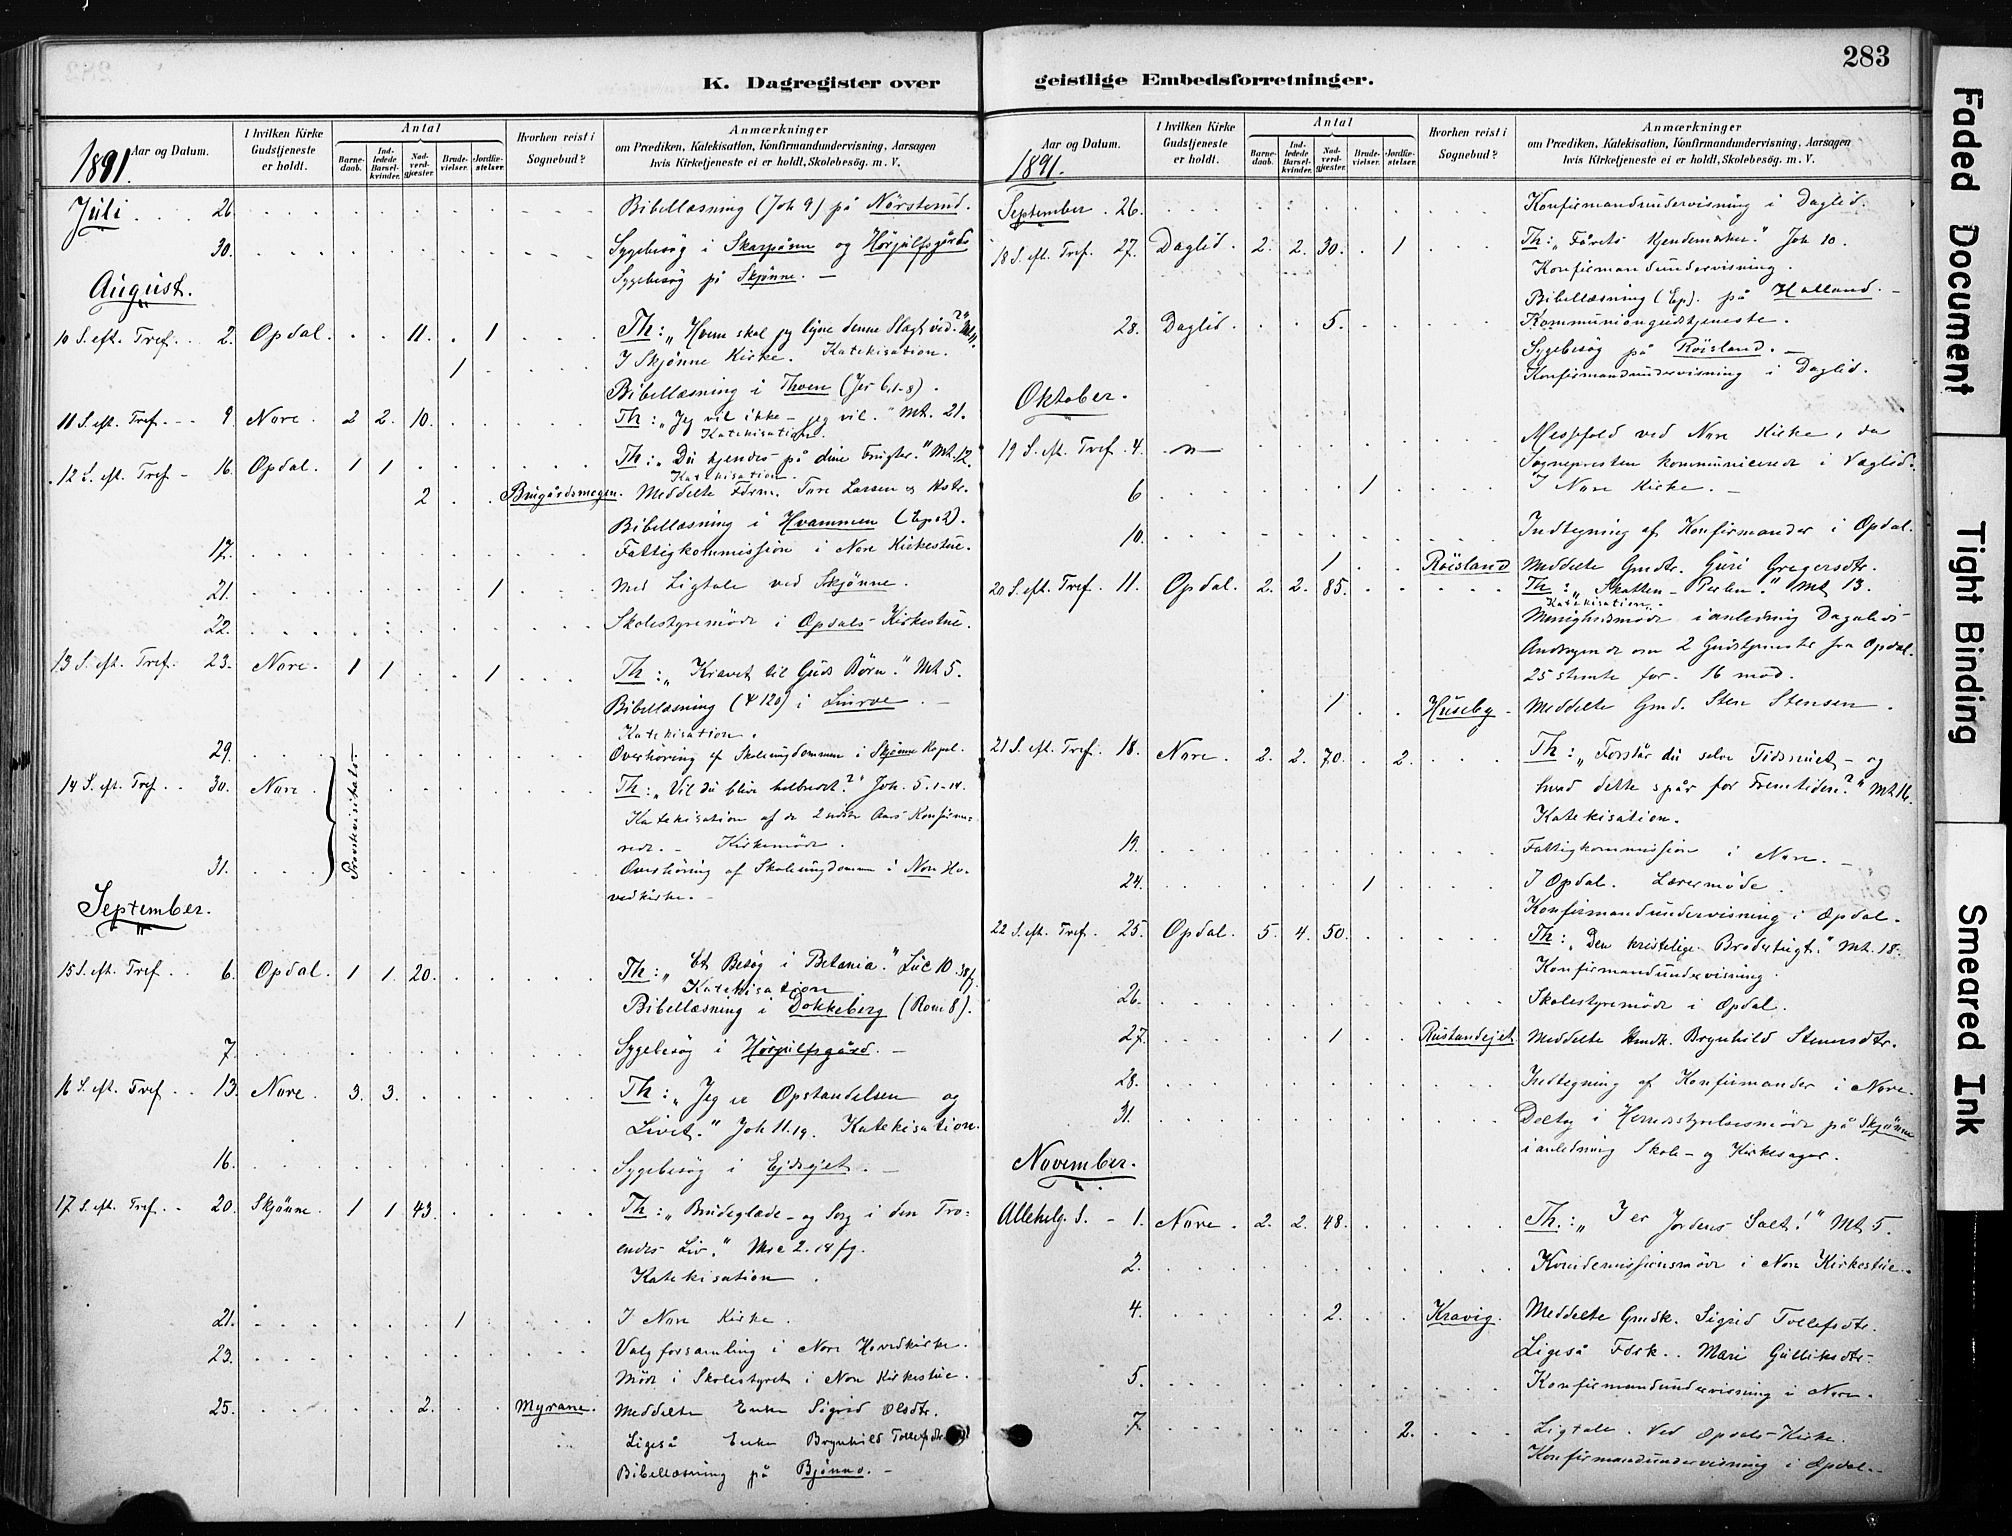 283
K. Dagregister over
geistlige Embedsforretninger.
Faded Document
Tight Binding
Smeared Ink
Aar og Datum.
I hvilken Kirke Gudstjeneste er holdt.
Antal
Barnedaab.
Indledede Barselkvinder.
Nadverdgjæster.
Brudevielser.
Jordfæstelser.
Hvorhen reist i Sognebud?
Anmærkninger
om Prædiken, Katekisation, Konfirmandundervisning, Aarsagen
hvis Kirketjeneste ei er holdt, Skolebesøg. m. V.
1891.
Juli 26. Bibellæsning (Joh 9) på Nørsterud.
30. Sygebesög i Skarpånn og Hørjulfsgård
Sygebesög på Skjönne. —
August.
10 S. eft. Tref. 2. Opdal. 11. 1 Th: „Hvem skal jeg ligne denne Slagt ved?"
1 I Skjönne Kirke. Katekisation.
Bibellæsning i Thoen (Jer 6,1-8).
11 S. eft. Tref. 9 Nore. 2 2. 10. Th: „Jeg vil ikke – jeg vil." Mt. 21.
Katekisation.
12 S. eft. Tref 16. Opdal. 1 1. Th: „Du kjendes på dine Frugter." Mt. 12.
Katekisation.
2 Meddelte Form. Tore Larsen & Kstr.
Bibellæsning i Hvammen
17. Fattigkommission i Nore Kirkestue.
21. 1 Med Ligtale ved Skjönne.
22. Skolestyremöde i Opdals Kirkestue.
13 S. eft. Tref. 23. Nore. 1 1. 1 Th: „Kravet til Guds Börn." Mt 5.
Bibellæsning (Ψ 120) i
Katekisation.
29. Overhöring af Skoleungdommen i Skjönne Kapel.
14 S. eft. Tref. 30. Nore. Provstevisitats Th: „Vil du blive helbredet?" Joh. 5. 1-14.
Katekisation af de 2 sidste Aars Konfirme-
rede. – Kirkemöde.
31. Overhöring af Skoleungdommen i Nore Ho-
vedkirke. –
September.
15 S. eft. Tref. 6. Opdal. 1 1. 20. Th: „Et Besög i Betania." Luc 10. 38 f.
Katekisation
Bibellæsning i Dokkeberg (Rom 8).
7. Sygebesög i Hørjulfsgård. –
16 S. eft. Tref 13. Nore. 3. 3. Th: „Jeg er Opstandelsen og
Livet." Joh 11. 19. Katekisation.
16. Sygebesög i Ejdsejet. –
17 S. eft. Tref. 20. Skjönne. 1 1 43. Th: „Brudeglæde – og Sorg i den Tro-
endes Liv." Mrc 2. 18 fg.
Katekisation.
21. 1 I Nore Kirke.
23. Valgforsamling i Nore Hovedkirke.
Möde i Skolestyret i Nore Kirkestue.
25. 2. Myrane. Meddelte Enke Sigrid Olsdtr.
Ligeså Enke Brynhild Tollefsdtr.
Bibellæsning på Bjönno. –
Aar og Datum.
I hvilken Kirke Gudstjeneste er holdt.
Antal
Barnedaab.
Indledede Barselkvinder.
Nadverdgjæster.
Brudevielser.
Jordfæstelser.
Hvorhen reist i Sognebud?
Anmærkninger
om Prædiken, Katekisation, Konfirmandundervisning, Aarsagen
hvis Kirketjeneste ei er holdt, Skolebesøg. m. V.
1891.
September. 26. Konfirmandundervisning i Daglid.
18 S. eft. Tref. 27. Daglid. 2. 2. 30. 1 Th: „Fårets Kjendemærker." Joh 10.
Konfirmandundervisning.
Bibellæsning (Esp). på Halland. –
28. Daglid. 5. Kommuniongudstjeneste.
Sygebesög på Röisland. –
Konfirmandundervisning i Daglid.
Oktober.
19 S. eft. Tref. 4. Messefald ved Nore Kirke, da
Sognepresten kommunicerede i Væglid.
6 1 I Nore Kirke. –
10. Indtegning af Konfirmander i Opdal.
1 Röisland Meddelte Gmdtr. Guri Gregersdtr.
20 S. eft. Tref. 11. Opdal. 2. 2. 85. Th: „Skatten – Perlen." Mt 13.
Katekisation.
Menighedsmöde i anledning Dagalids
Andragende om 2 Gudstjenester fra Opdal.
25 stemte for. 16 mod.
1 Huseby. Meddelte Gmd. Sten Stensen.
21 S. eft. Tref. 18. Nore. 2. 2. 70. 2. Th: „Forstår du selve Tidsnuet – og
hvad dette spår for Fremtiden?" Mt 16.
Katekisation.
19. Fattigkommission i Nore. –
24. 1 I Opdal. Lærermöde.
Konfirmandundervisning i Opdal.
22 S. eft. Tref. 25. Opdal. 5. 4. 50. Th: „Den kristelige Brodertugt." Mt. 18.
Konfirmandundervisning.
26. Skolestyremöde i Opdal.
27. 1 Rustandejet. Meddelte Brynhild Stenersdtr.
28. Indtegning af Konfirmander i Nore.
31. Deltog i Herredsstyrelsesmöde på Skjönne
i anledning Skole- og Kirkesager.
November.
Allehelg. S. 1. Nore. 2. 2. 48. Th.: „I er Jordens Salt!" Mt 5.
2. i Nore Kirkestue.
4. 2. Kravig. Meddelte Gmdk. Sigrid Tollefsdtr.
Ligeså Fdrk. Mari Gulliksdtr.
5. Konfirmandundervisning i Nore.
7. 2. Ligtale. Ved Opdals-Kirke.
Konfirmandundervisning i Opdal. –